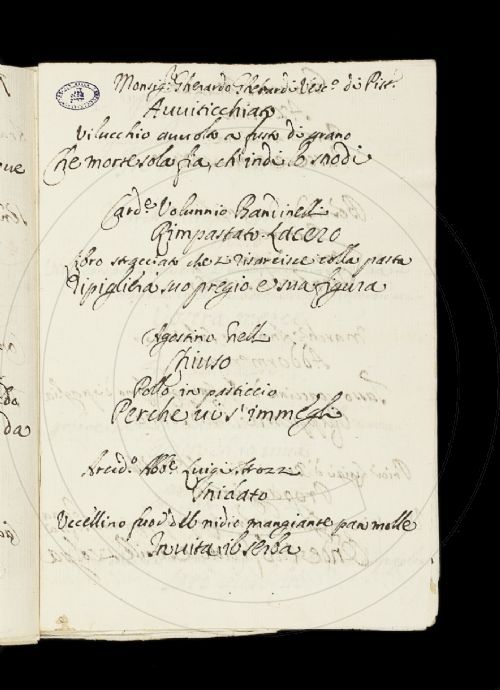 Monsig.r Gherardo Gherardi Vesc.o di Pist.a
Avviticchiato
Vilucchio avvolto a fusto di grano
Che morte sola fia, ch'indi lo snodi
Card.e Volunnio Bandinelli
Rimpastato Lacero
Libro stracciato che si risarcisce colla pasta
Ripiglierà suo pregio e sua figura
Agostino Nelli
Chiuso
Pollo in pasticcio
Perche vi s'immegli
Arcid.o Abb.e Luigi Strozzi
Snidato
Uccellino fuor del nidio mangiante pan molle
In vita il serba